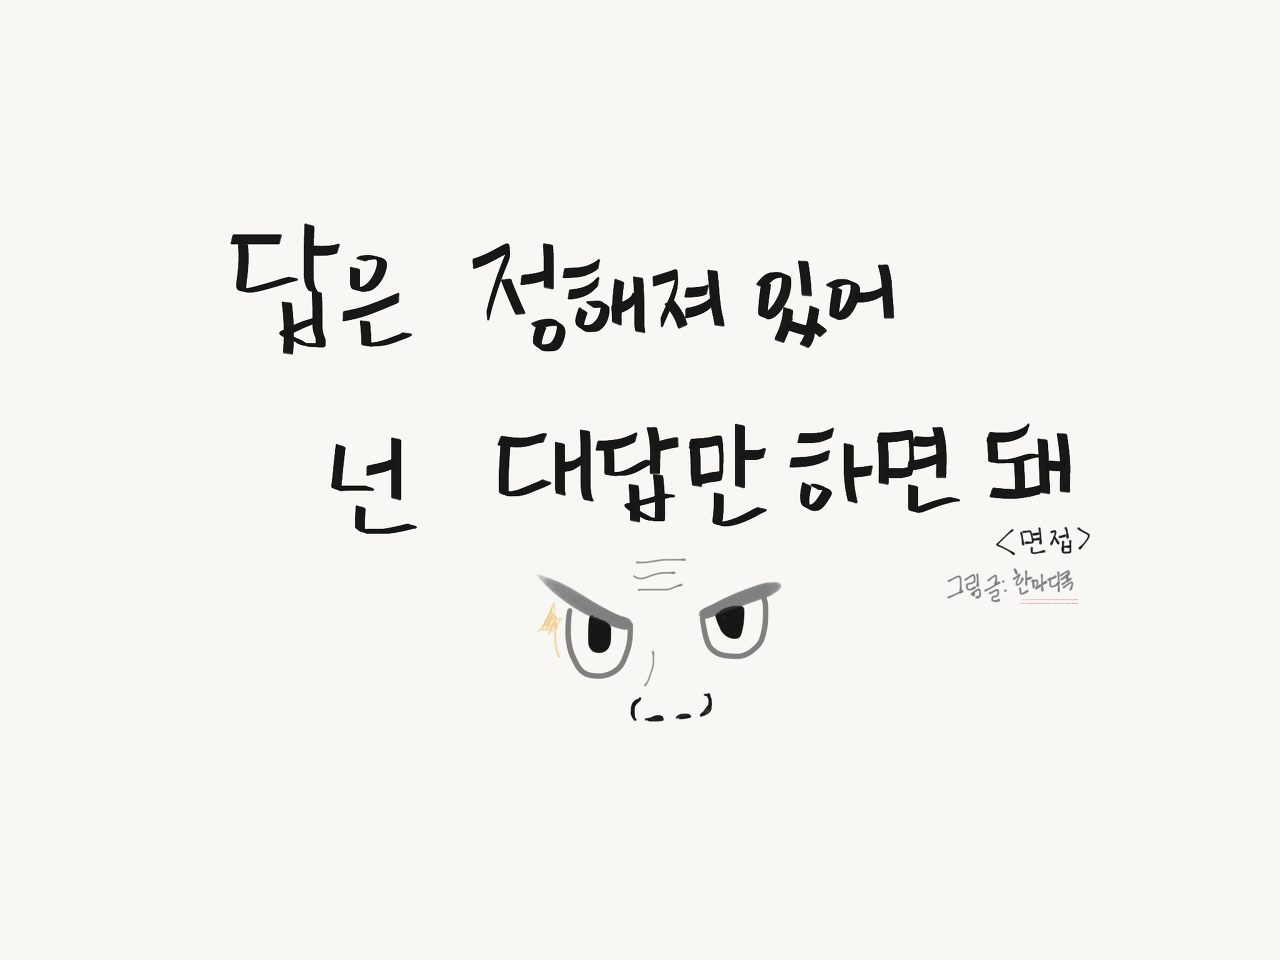 답은 정해져 있어
넌 대답만 하면 돼
<면접>
그림글: 한마디록